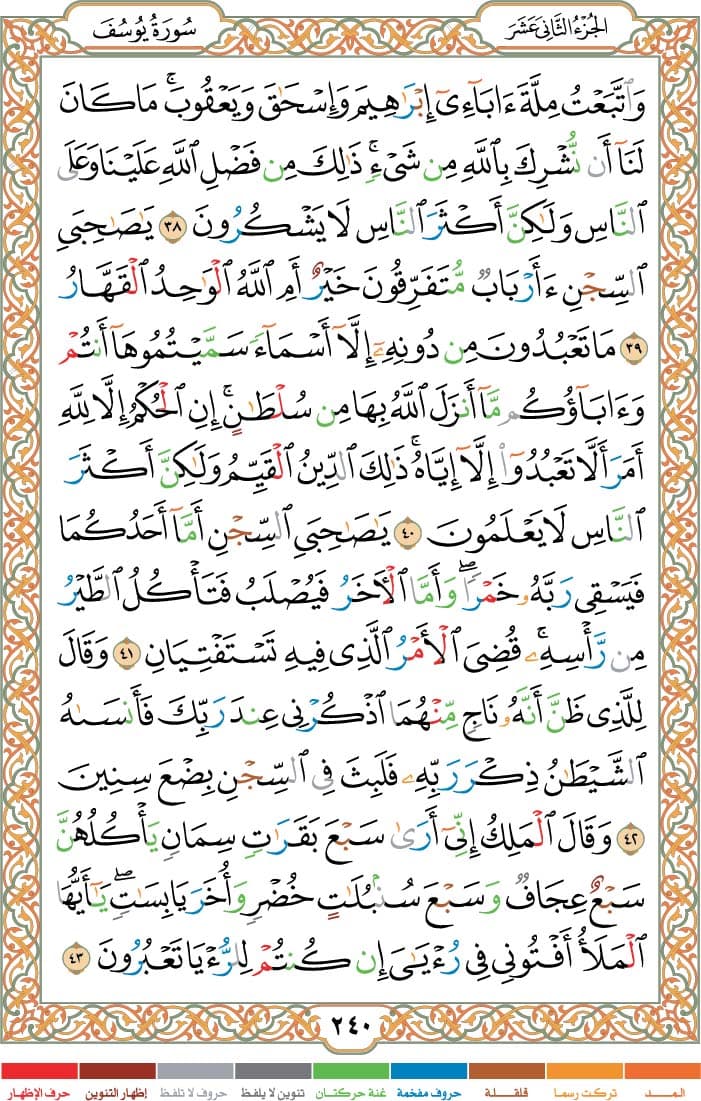 الجُزْءُ الثَّانِي عَشَرَ
سُورَةُ يُوسُفَ
وَٱتَّبَعْتُ مِلَّةَ ءَابَآءِىٓ إِبْرَٰهِيمَ وَإِسْحَٰقَ وَيَعْقُوبَ ۚ مَا كَانَ
لَنَآ أَن نُّشْرِكَ بِٱللَّهِ مِن شَىْءٍ ۚ ذَٰلِكَ مِن فَضْلِ ٱللَّهِ عَلَيْنَا وَعَلَى
ٱلنَّاسِ وَلَٰكِنَّ أَكْثَرَ ٱلنَّاسِ لَا يَشْكُرُونَ ٣٨ يَٰصَٰحِبَىِ
ٱلسِّجْنِ ءَأَرْبَابٌ مُّتَفَرِّقُونَ خَيْرٌ أَمِ ٱللَّهُ ٱلْوَٰحِدُ ٱلْقَهَّارُ
٣٩ مَا تَعْبُدُونَ مِن دُونِهِۦٓ إِلَّآ أَسْمَآءً سَمَّيْتُمُوهَآ أَنتُمْ
وَءَابَآؤُكُم مَّآ أَنزَلَ ٱللَّهُ بِهَا مِن سُلْطَٰنٍ ۚ إِنِ ٱلْحُكْمُ إِلَّا لِلَّهِ
أَمَرَ أَلَّا تَعْبُدُوٓا۟ إِلَّآ إِيَّاهُ ۚ ذَٰلِكَ ٱلدِّينُ ٱلْقَيِّمُ وَلَٰكِنَّ أَكْثَرَ
ٱلنَّاسِ لَا يَعْلَمُونَ ٤٠ يَٰصَٰحِبَىِ ٱلسِّجْنِ أَمَّآ أَحَدُكُمَا
فَيَسْقِى رَبَّهُۥ خَمْرًا ۖ وَأَمَّا ٱلْءَاخَرُ فَيُصْلَبُ فَتَأْكُلُ ٱلطَّيْرُ
مِن رَّأْسِهِۦ ۚ قُضِىَ ٱلْأَمْرُ ٱلَّذِى فِيهِ تَسْتَفْتِيَانِ ٤١ وَقَالَ
لِلَّذِى ظَنَّ أَنَّهُۥ نَاجٍ مِّنْهُمَا ٱذْكُرْنِى عِندَ رَبِّكَ فَأَنسَىٰهُ
ٱلشَّيْطَٰنُ ذِكْرَ رَبِّهِۦ فَلَبِثَ فِى ٱلسِّجْنِ بِضْعَ سِنِينَ
٤٢ وَقَالَ ٱلْمَلِكُ إِنِّىٓ أَرَىٰ سَبْعَ بَقَرَٰتٍ سِمَانٍ يَأْكُلُهُنَّ
سَبْعٌ عِجَافٌ وَسَبْعَ سُنۢبُلَٰتٍ خُضْرٍ وَأُخَرَ يَابِسَٰتٍ ۖ يَٰٓأَيُّهَا
ٱلْمَلَأُ أَفْتُونِى فِى رُءْيَٰىَ إِن كُنتُمْ لِلرُّءْيَا تَعْبُرُونَ ٤٣
٢٤٠
المــد
تركت رسما
قلقلة
حروف مفخمة
غنة حركتان
تنوين لا يلفظ
حروف لا تلفظ
إظهار التنوين
حرف الإظهار